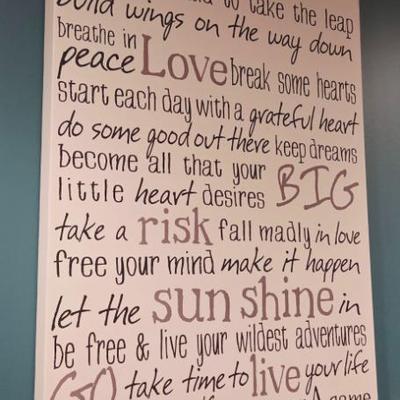 to take the leap
build wings on the way down
breathe in
peace Love break some hearts
start each day with a grateful heart
do some good out there keep dreams
become all that your
little heart desires BIG
take a risk fall madly in love
free your mind make it happen
let the sun shine in
be free & live your wildest adventures
GO take time to live your life
A game